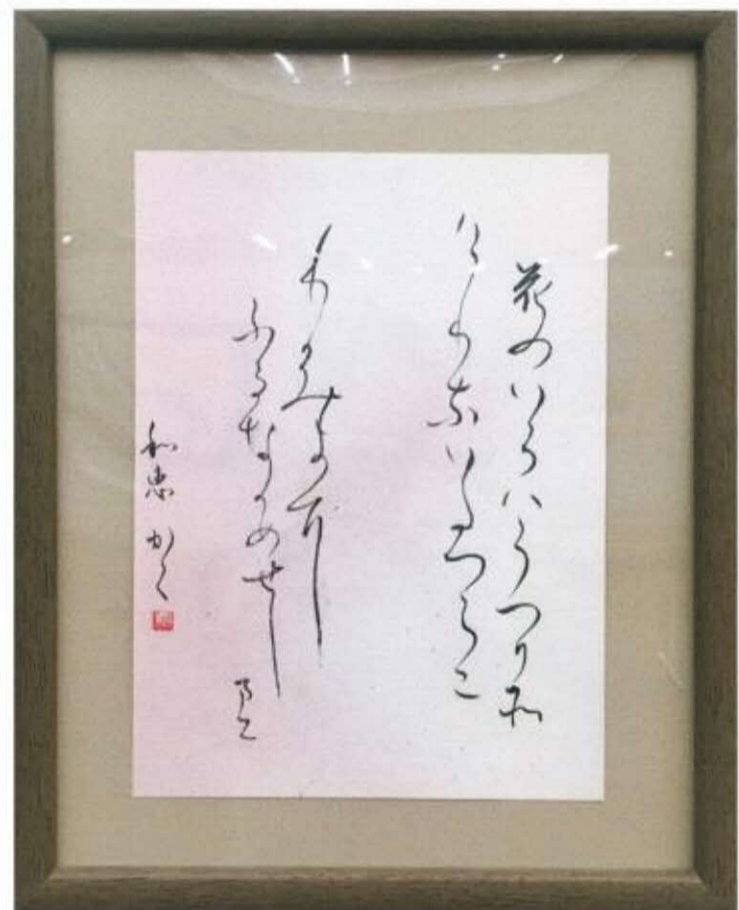 花のいろはうつりに
けりないたつらに
わかみよに
ふるなかめせし
まに
和恵 かく